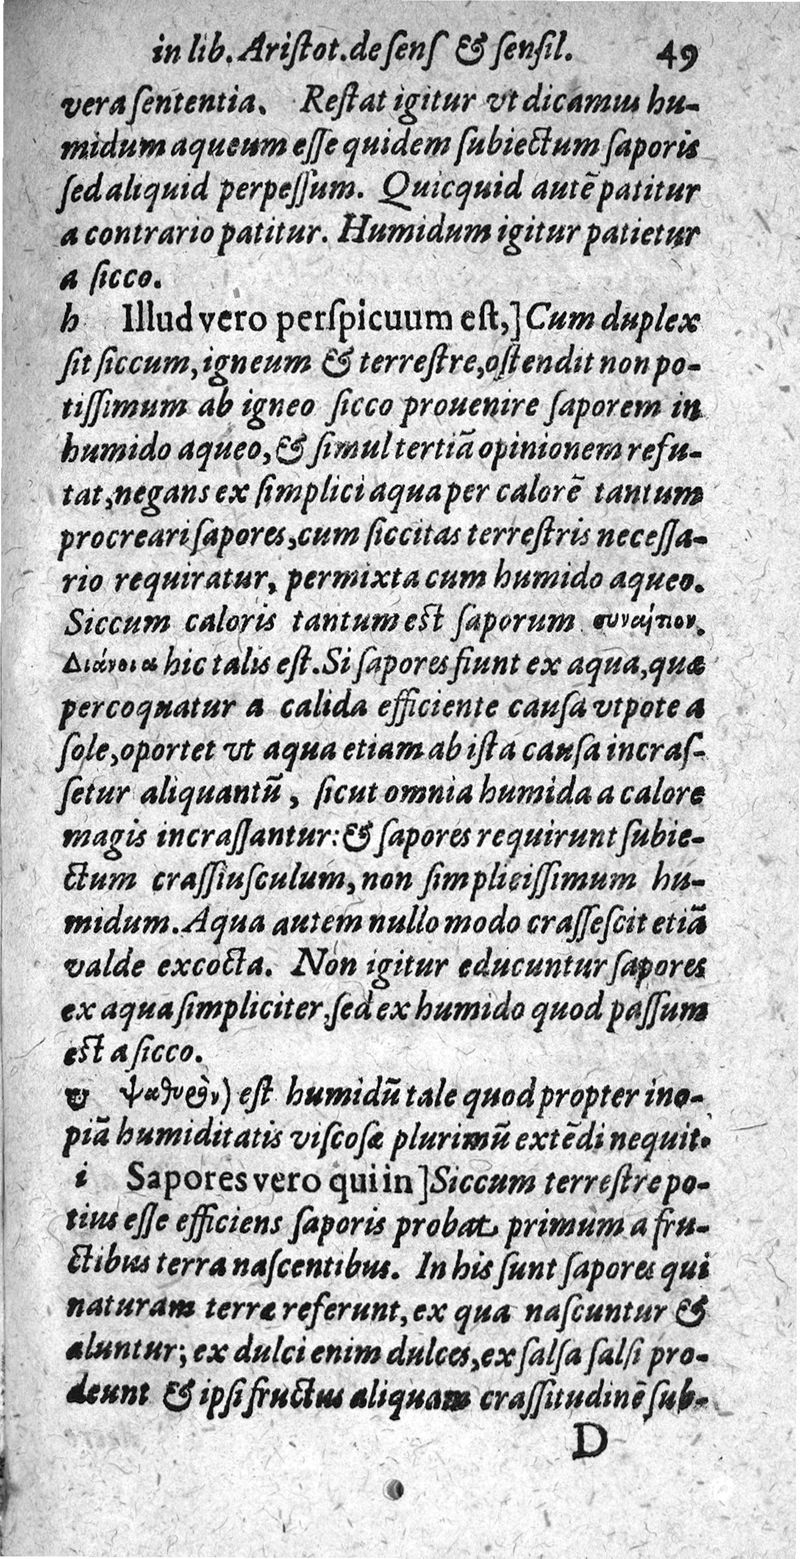 in lib. Aristot. de sens & sensil. 49
vera sententia. Restat igitur vt dicamus hu-
midum aqueum esse quidem subiectum saporis
sed aliquid perpessum. Quicquid autē patitur
a contrario patitur. Humidum igitur patietur
a sicco.
h Illud vero perspicuum est,] Cum duplex
sit siccum, igneum & terrestre, ostendit non po-
tissimum ab igneo sicco prouenire saporem in
humido aqueo, & simul tertiā opinionem refu-
tat, negans ex simplici aqua per calorē tantum
procreari sapores, cum siccitas terrestris necessa-
rio requiratur, permixta cum humido aqueo.
Siccum caloris tantum est saporum συναίτιον.
Διάνοια hic talis est. Si sapores fiunt ex aqua, quæ
percoquatur a calida efficiente causa vtpote a
sole, oportet vt aqua etiam ab ista causa incras-
setur aliquantū, sicut omnia humida a calore
magis incrassantur: & sapores requirunt subie-
ctum crassiusculum, non simplicissimum hu-
midum. Aqua autem nullo modo crassescit etiā
valde excocta. Non igitur educuntur sapores
ex aqua simpliciter, sed ex humido quod passum
est a sicco.
ψαθυρὸν) est humidū tale quod propter ino-
piā humiditatis viscosæ plurimū extēdi nequit.
i Sapores vero qui in] Siccum terrestre po-
tius esse efficiens saporis probat primum a fru-
ctibus terra nascentibus. In his sunt sapores qui
naturam terræ referunt, ex qua nascuntur &
aluntur; ex dulci enim dulces, ex salsa salsi pro-
deunt & ipsi fructus aliquam crassitudinē sub-
D